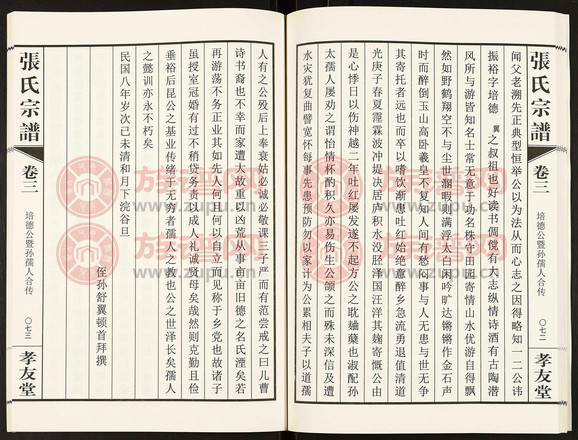 張氏宗譜
卷三
培德公暨孙孺人合传
〇七二
孝友堂
闻父老溯先正典型恒举公以为法从而心志之因得略知一二公讳
振裕字培德 翼之叔祖也好读书倜傥有大志纵情诗酒有古陶潜
风所与游皆知名士常无意于功名株守田园寄情山水优游自得飘
然如野鹤翔空不与尘世溷暇则满浮太白闲吟旷达锵锵作金石声
时而醉倒玉山高卧羲皇不复知人间有愁闷事与人无患与世无争
其寄托者远也而卒以嗜饮渐患吐红始绝意醉乡急流勇退值清道
光庚子春夏霪霖波冲堤决居庐积水没胫泽国汪洋其麹寄慨公由
是心悸日以伤神越二年吐红屡发遂不起方公之耽麯蘖也淑配孙
太孺人屡劝之谓怡情杯酌积久亦易伤生公颔之而殊未深信及遭
水灾犹复曲譬宽怀每事先患预防勿以家计为公累相夫子以道孺
人有之公殁后上奉衰姑必诚必敬课三子严而有范尝戒之曰儿曹
诗书裔也不幸而家遭大故重以凶荒从事何亩旧德之名氏湮矣若
再游荡不务正业其如先人何且何以自立而见称于乡党也故诸子
虽授室冠婚有过不稍贷务责以成人礼诚贤母矣哉然则克勤且俭
垂裕后昆公之基业传绪于无穷者孺人之教也公之世泽长矣孺人
之懿训亦永不朽矣
民国八年岁次己未清和月下浣谷旦
侄孙舒翼顿首拜撰
張氏宗譜
卷三
培德公暨孙孺人合传
〇七三
孝友堂
族谱网
www.zupu.cn